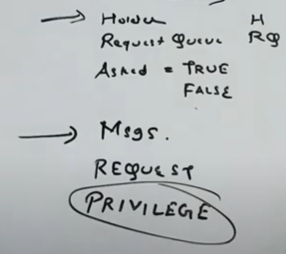 → Holder H
Request Queue RQ
Asked = TRUE
FALSE
→ Msgs.
REQUEST
PRIVILEGE